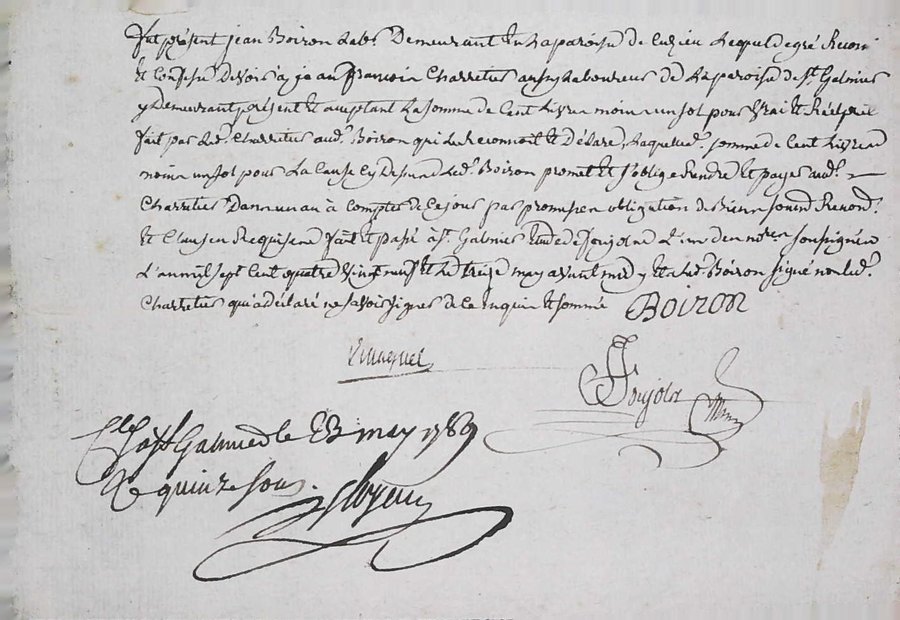 fut présent jean Boiron lab.r Demeurant En la paroisse de Cuzieu Lequel de gré Reconn
Et Confesse Devoir a jean francois Charretier aussy laboureur de La paroisse de St. Galmier
y Demeurant présent Et acceptant La somme de Cent Livres moins un sol pour Vrai Et Réel prêt
fait par led. Charretier aud. Boiron qui Le Reconnoit Et Déclare, Laquelle d. somme de Cent Livres
moins un sol pour La Cause Cy Dessus Led. Boiron promet Et s'oblige Rendre Et payer aud.
Charretier Dans un an à Compter de Ce jour par promesse obligation de Biens soumd. Renond.
Et Clauses Requises fait Et passé à St. Galmier Etude de Soujolot L'un des nores. soussignés
L'an mil sept Cent quatre Vingt neuf Et Le treize may avant midy Et a Led. Boiron signé non led.
Charretier qui a déclaré ne savoir signer de ce Enquis Et sommé Boiron
Soujolot
Cllé à St Galmier le 23 may 1789
Re quinze sous.